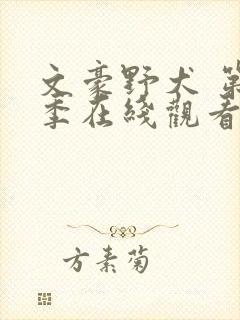 文豪野犬 第
季在綫觀看
方素菊